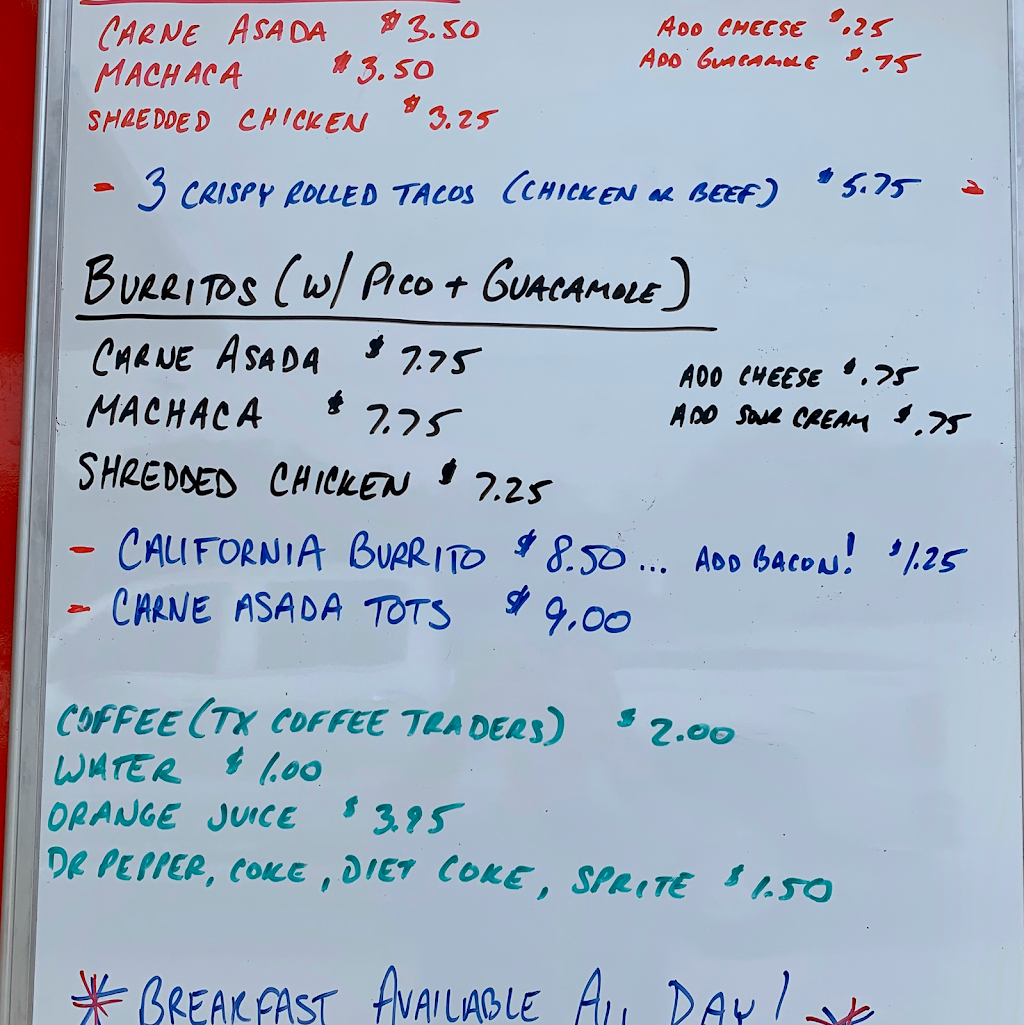 CARNE ASADA $3.50 ADD CHEESE $.25
MACHACA $3.50 ADD GUACAMOLE $.75
SHREDDED CHICKEN $3.25
- 3 CRISPY ROLLED TACOS (CHICKEN OR BEEF) $5.75 -
BURRITOS (W/ PICO + GUACAMOLE)
CARNE ASADA $7.75 ADD CHEESE $.75
MACHACA $7.75 ADD SOUR CREAM $.75
SHREDDED CHICKEN $7.25
- CALIFORNIA BURRITO $8.50... ADD BACON! $1.25
- CARNE ASADA TOTS $9.00
COFFEE (TX COFFEE TRADERS) $2.00
WATER $1.00
ORANGE JUICE $3.95
DR PEPPER, COKE, DIET COKE, SPRITE $1.50
* BREAKFAST AVAILABLE ALL DAY! *